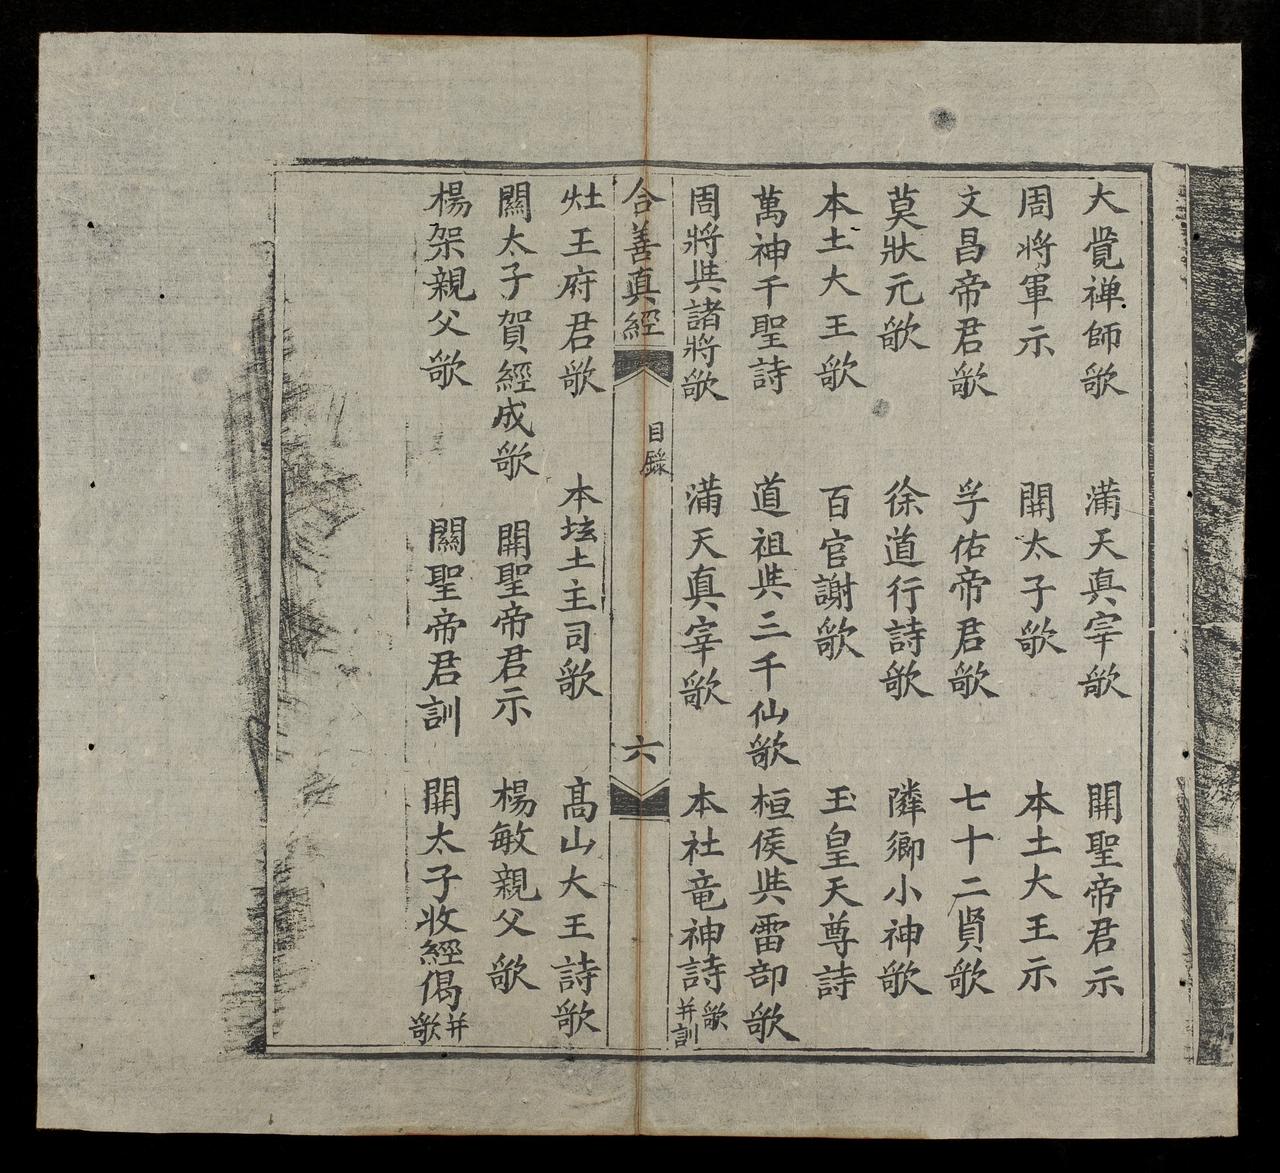 大覺禅師歌 滿天真宰歌 関聖帝君示
周將軍示 関太子歌 本土大王示
文昌帝君歌 孚佑帝君歌 七十二賢歌
莫狀元歌 徐道行詩歌 隣鄉小神歌
本土大王歌 百官謝歌 玉皇天尊詩
萬神千聖詩 道祖共三千仙歌 桓侯共雷部歌
周將共諸將歌 滿天真宰歌 本社竜神詩歌并訓
合善真經 目錄 六
灶王府君歌 本坛土主司歌 高山大王詩歌
關太子賀經成歌 関聖帝君示 楊敏親父歌
楊架親父歌 關聖帝君訓 関太子收經偈并歌